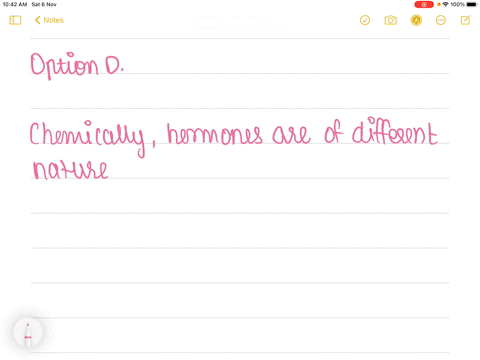 10:42 AM Sat 6 Nov
100%
Notes
Option D.
Chemically, hermones are of different
nature